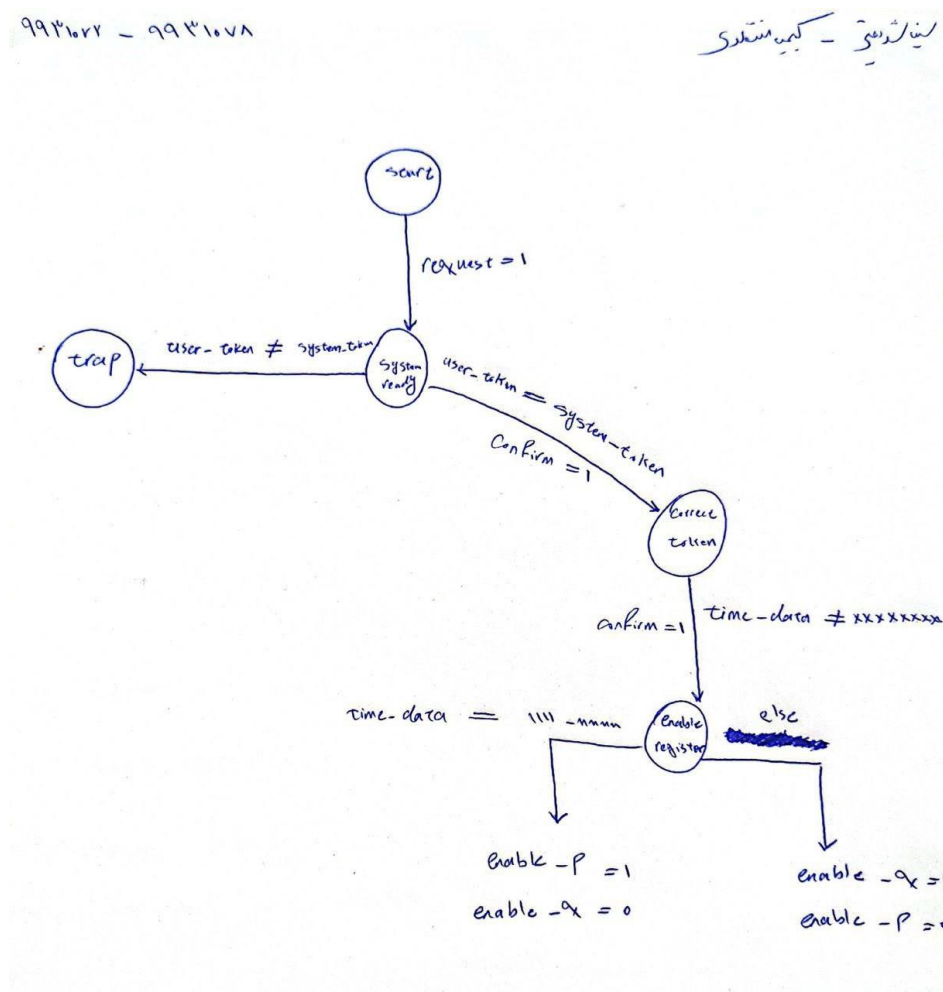 ۹۹۳۱۰۲۲ – ۹۹۳۱۰۷۸
start
request = 1
trap
user-token ≠ system-token
system
ready
user-token = system-token
Confirm = 1
Correct
token
Confirm = 1
time-data ≠ xxxxxxxx
time-data = 1111-nnnn
enable
register
else
enable-P = 1
enable-q = 0
enable-q =
enable-P =